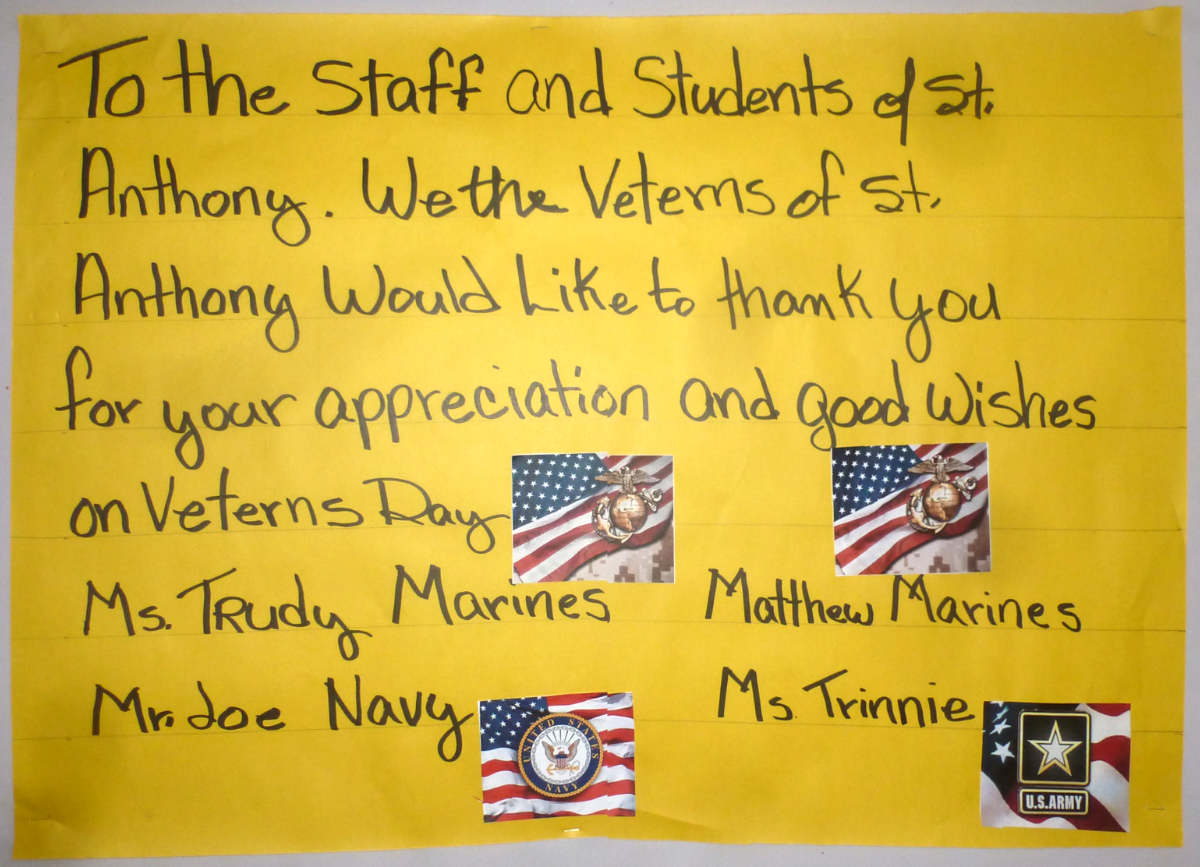 To the Staff and Students of St.
Anthony. We the Veterns of St.
Anthony Would Like to thank you
for your appreciation and good wishes
on Veterns Day
Ms. Trudy Marines Matthew Marines
Mr. Joe Navy Ms. Trinnie
UNITED STATES
NAVY
U.S. ARMY